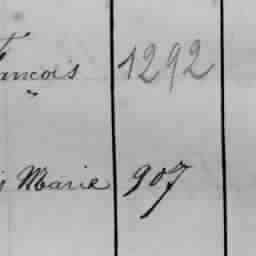 François 1292
"
Marie 907